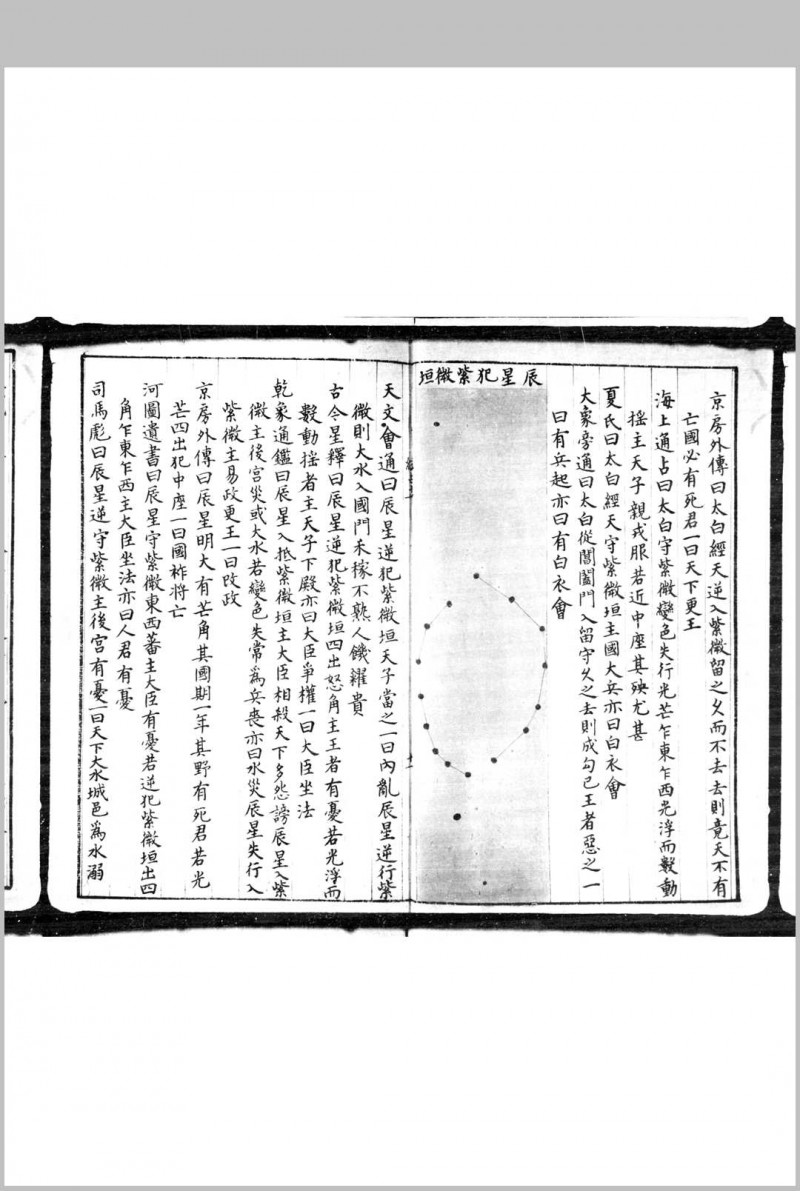 京房外傳曰太白經天逆入紫微留之久而不去去則竟天不有
亡國必有死君一曰天下更王
海上通占曰太白守紫微變色失行光芒乍東乍西光浮而數動
搖主天子親戎服若近中座其殃尤甚
夏氏曰太白經天守紫微垣主國大兵亦曰白衣會
大象旁通曰太白從閶闔門入留守久之去則成勾己王者惡之一
曰有兵起亦曰有白衣會
辰星犯紫微垣
天文會通曰辰星逆犯紫微垣天子當之一曰內亂辰星逆行紫
微則大水入國門禾稼不熟人饑糴貴
古今星釋曰辰星逆犯紫微垣四出怒角主王者有憂若光浮而
數動搖者主天子下殿亦曰大臣爭權一曰大臣坐法
乾象通鑑曰辰星入抵紫微垣主大臣相殺天下多怨謗辰星入紫
微主後宮災或大水若變色失常為兵喪亦曰水災辰星失行入
紫微主易政更王一曰改政
京房外傳曰辰星明大有芒角其國期一年其野有死君若光
芒四出犯中座一曰國祚將亡
河圖遺書曰辰星守紫微東西蕃主大臣有憂若逆犯紫微垣出四
角乍東乍西主大臣坐法亦曰人君有憂
司馬彪曰辰星逆守紫微主後宮有憂一曰天下大水城邑為水溺